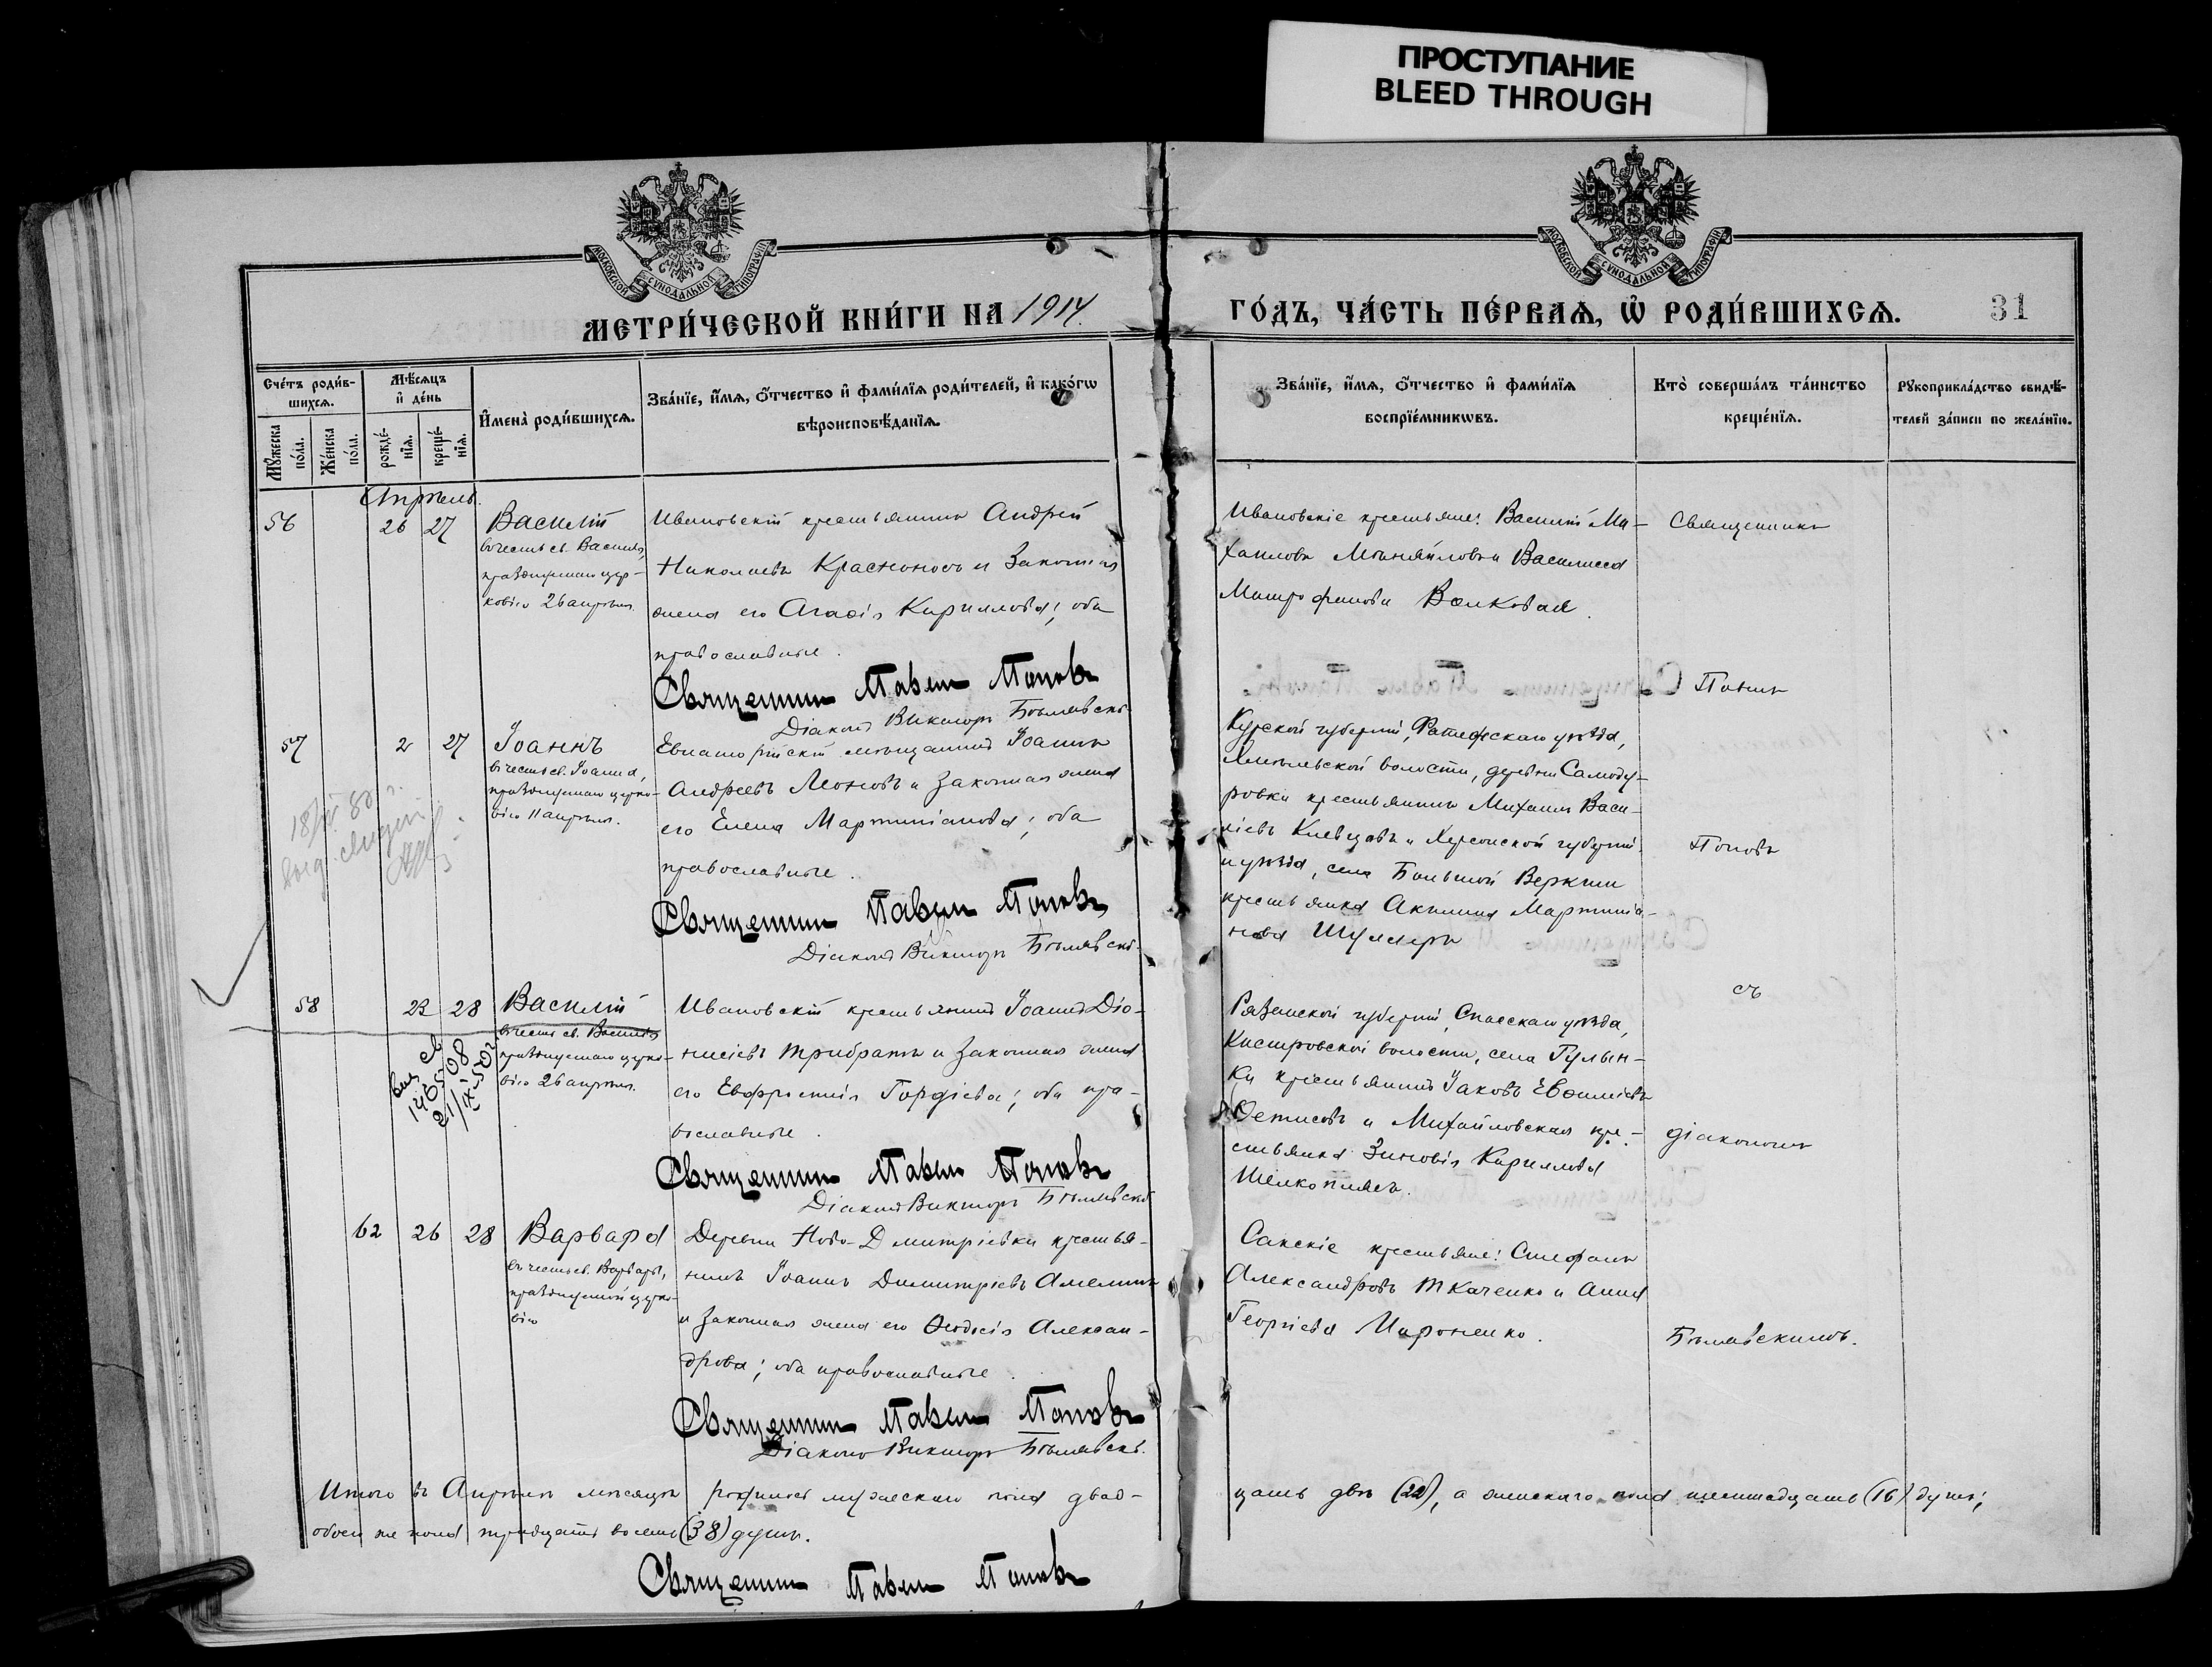 ПРОСТУПАНИЕ
BLEED THROUGH
МОСКОВСКОЙ СѴНОДАЛЬНОЙ ТИПОГРАФІИ
МОСКОВСКОЙ СѴНОДАЛЬНОЙ ТИПОГРАФІИ
МЕТРИ́ЧЕСКОЙ КНИ́ГИ НА 1914.
ГО́ДЪ, ЧА́СТЬ ПЕ́РВАѦ, Ѡ҆ РОДИ́ВШИХСѦ. 31
Сче́тъ роди́в-
шихсѧ.
Мꙋ́жеска по́ла.
Же́нска по́ла.
Мѣ́сѧцъ и҆ де́нь
рожде́-нїѧ.
креще́-нїѧ.
И҆мена̀ роди́вшихсѧ.
Зва́нїе, и҆́мѧ, ѻ҆́тчество и҆ фами́лїѧ роди́телей, и҆ како́гѡ
вѣроисповѣ́данїѧ.
Зва́нїе, и҆́мѧ, ѻ҆́тчество и҆ фами́лїѧ
воспрїе́мникѡвъ.
Кто̀ соверша́лъ та́инство
креще́нїѧ.
Рꙋкоприкла́дство свидѣ́-
телей за́писи по жела́нїю.
Апрель.
56 26 27 Василій
въ честь св. Василія,
празднуемаго цер-
ковію 26 апреля.
Ивановскій крестьянинъ Андрей
Николаевъ Красноносъ и законная
жена его Агаѳія Кириллова; оба
православные.
Священникъ Павелъ Поповъ
Діаконъ Викторъ Бѣлявскій
Ивановскіе крестьяне: Василій Ми-
хаиловъ и Василисса
Митрофанова Волковая.
Священникъ
Павелъ
Поповъ
съ
діакономъ
Бѣлявскимъ.
57 2 27 Іоаннъ
въ честь св. Іоанна,
празднуемаго церко-
вію 11 апреля.
Евпаторійскій мѣщанинъ Іоаннъ
Андреевъ Леоновъ и законная жена
его Елена Мартиніанова; оба
православные.
Священникъ Павелъ Поповъ
Діаконъ Викторъ Бѣлявскій
Курской губерніи, Фатежскаго уѣзда,
волости, деревни Самоду-
ровки крестьянинъ Михаилъ Васи-
ліевъ Киевцовъ и Херсонской губерніи
и уѣзда, села Большой
крестьянка Акилина Мартиніа-
нова Шуляеръ
58 23 28 Василій
въ честь св. Василія
празднуемаго церко-
вію 26 апреля.
Ивановскій крестьянинъ Іоаннъ Діо-
нисіевъ Трибратъ и законная жена
его Евфросинія Гордіева; оба пра-
вославные.
Священникъ Павелъ Поповъ
Діаконъ Викторъ Бѣлявскій
Рязанской губерніи, Спасскаго уѣзда,
волости, села Гулын-
ки крестьянинъ Іаковъ Евѳиміевъ
и Михайловская кре-
стьянка Зиновія Кириллова
Шелкоплясъ.
62 26 28 Варвара
въ честь св. Варвары,
празднуемой церко-
вію
Деревни Ново-Дмитріевки крестья-
нинъ Іоаннъ Димитріевъ Амелинъ
и законная жена его Ѳеодосія Алексан-
дрова; оба православные.
Священникъ Павелъ Поповъ
Діаконъ Викторъ Бѣлявскій.
Сакскіе крестьяне: Стефанъ
Александровъ Ткаченко и Анна
Георгіева Мироненко.
Итого въ Апрелѣ мѣсяцѣ родилось мужескаго пола двад-
цать двѣ (22), а женскаго пола шестнадцать (16) душъ;
обоего же пола тридцать восемь (38) душъ.
Священникъ Павелъ Поповъ